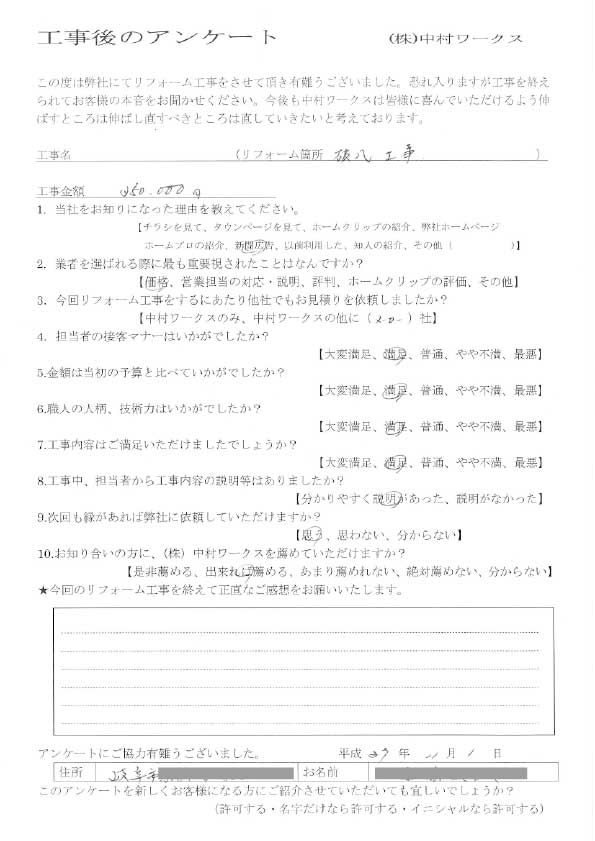 工事後のアンケート (株)中村ワークス
この度は弊社にてリフォーム工事をさせて頂き有難うございました。恐れ入りますが工事を終え
られてお客様の本音をお聞かせください。今後も中村ワークスは皆様に喜んでいただけるよう伸
ばすところは伸ばし直すべきところは直していきたいと考えております。
工事名 (リフォーム箇所 工事 )
工事金額 250.000円
1. 当社をお知りになった理由を教えてください。
【チラシを見て、タウンページを見て、ホームクリップの紹介、弊社ホームページ
ホームプロの紹介、新聞広告、以前利用した、知人の紹介、その他( )】
2. 業者を選ばれる際に最も重要視されたことはなんですか?
【価格、営業担当の対応・説明、評判、ホームクリップの評価、その他】
3. 今回リフォーム工事をするにあたり他社でもお見積りを依頼しましたか?
【中村ワークスのみ、中村ワークスの他に( )社】
4. 担当者の接客マナーはいかがでしたか?
【大変満足、満足、普通、やや不満、最悪】
5.金額は当初の予算と比べていかがでしたか?
【大変満足、満足、普通、やや不満、最悪】
6.職人の人柄、技術力はいかがでしたか?
【大変満足、満足、普通、やや不満、最悪】
7.工事内容はご満足いただけましたでしょうか?
【大変満足、満足、普通、やや不満、最悪】
8.工事中、担当者から工事内容の説明等はありましたか?
【分かりやすく説明があった、説明がなかった】
9.次回も縁があれば弊社に依頼していただけますか?
【思う、思わない、分からない】
10.お知り合いの方に、(株)中村ワークスを薦めていただけますか?
【是非薦める、出来れば薦める、あまり薦めれない、絶対薦めない、分からない】
★今回のリフォーム工事を終えて正直なご感想をお願いいたします。
アンケートにご協力有難うございました。 平成 27 年 11 月 1 日
住所 岐阜市 お名前
このアンケートを新しくお客様になる方にご紹介させていただいても宜しいでしょうか?
(許可する・名字だけなら許可する・イニシャルなら許可する)